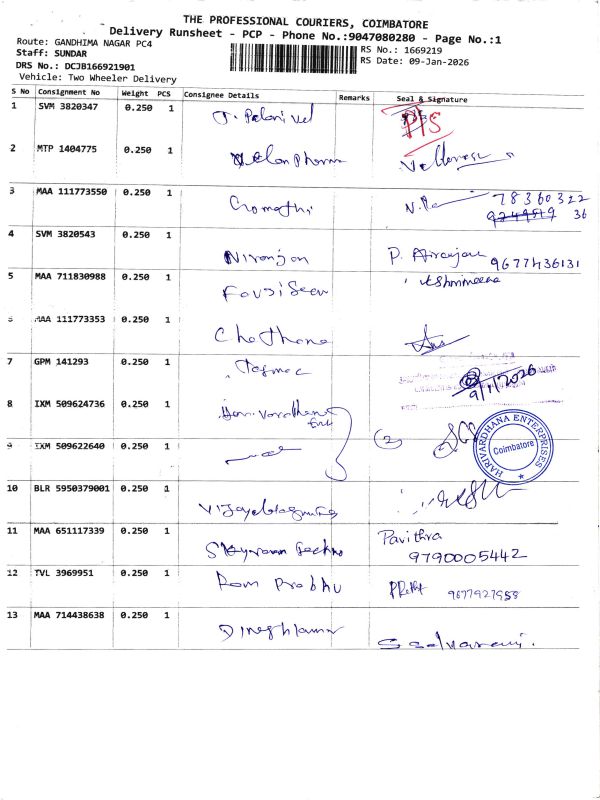 THE PROFESSIONAL COURIERS, COIMBATORE
Delivery Runsheet - PCP - Phone No.:9047080280 - Page No.:1
Route: GANDHIMA NAGAR PC4
Staff: SUNDAR
DRS No.: DCJB166921901
Vehicle: Two Wheeler Delivery
RS No.: 1669219
RS Date: 09-Jan-2026
S No Consignment No Weight PCS Consignee Details Remarks Seal & Signature
1 SVM 3820347 0.250 1 P/S
2 MTP 1404775 0.250 1
3 MAA 111773550 0.250 1 Gomathi 78360322
36
4 SVM 3820543 0.250 1 Niranjan 9677436131
5 MAA 711830988 0.250 1
6 MAA 111773353 0.250 1
7 GPM 141293 0.250 1 Tasmac 9/1/2026
8 IXM 509624736 0.250 1 Hari vardhana
HARIVARDHANA ENTERPRISES
Coimbatore
9 IXM 509622640 0.250 1 2
10 BLR 5950379001 0.250 1
11 MAA 651117339 0.250 1 Pavithra
9790005442
12 TVL 3969951 0.250 1 Ram Prabhu 9677927958
13 MAA 714438638 0.250 1 Dineshkumar